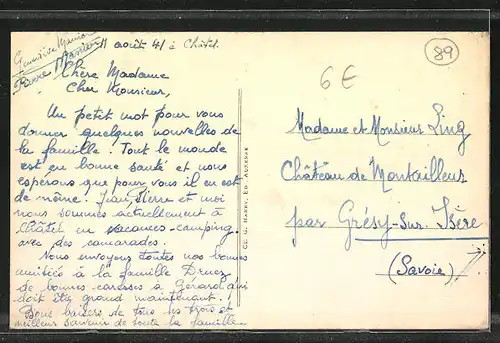 11 août 41 à Châtel
Chère Madame
Cher Monsieur,
Un petit mot pour vous
donner quelques nouvelles de
la famille ! Tout le monde
est en bonne santé et nous
espérons que pour vous il en est
de même. Jean Pierre et moi
nous sommes actuellement à
Châtel en vacances-camping
avec des camarades.
Nous envoyons toutes nos bonnes
amitiés à la famille
de bonnes caresses à Gérard qui
doit être grand maintenant.
Bons baisers de tous les trois et
meilleur souvenir de toute la famille
89
6€
Madame et Monsieur Ling
Château de Montailleur
par Grésy-Sur-Isère
(Savoie)